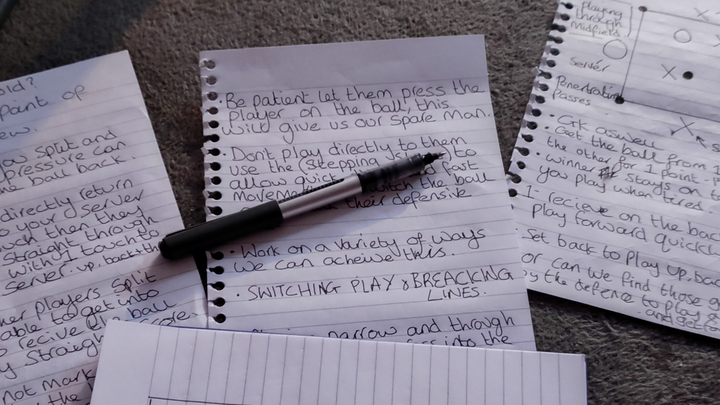 old?
Point of
ew.
ow split and
pressure can
the ball back.
directly return
your server
then they
straight through
with 1 touch to
server. up, back, thr
her players split
able to get into
recive the ball
y straight
not mark
the
· Be patient let them press the
player on the ball, this
will give us our spare man.
· Dont play directly to them
use the (stepping
to
allow quick
fast
movement
switch the ball
their defensive
· Work on a variety of ways
we can acheive this.
· SWITCHING PLAY & BREACKING
LINES.
narrow and through
into the
Playing
through
Midfield
Server
Penetrating
Passes
X
O
X
X
· Get the ball from 1
the other for 1 point.
winner stays on
you play
I recieve on the bac
Play forward quickl
set back to play up, bac
or can we find those g
by the defence to play